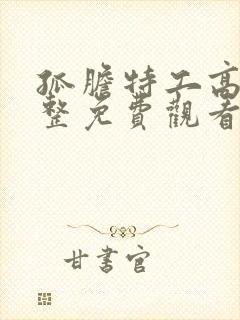 孤膽特工高
整免費觀看
甘書官